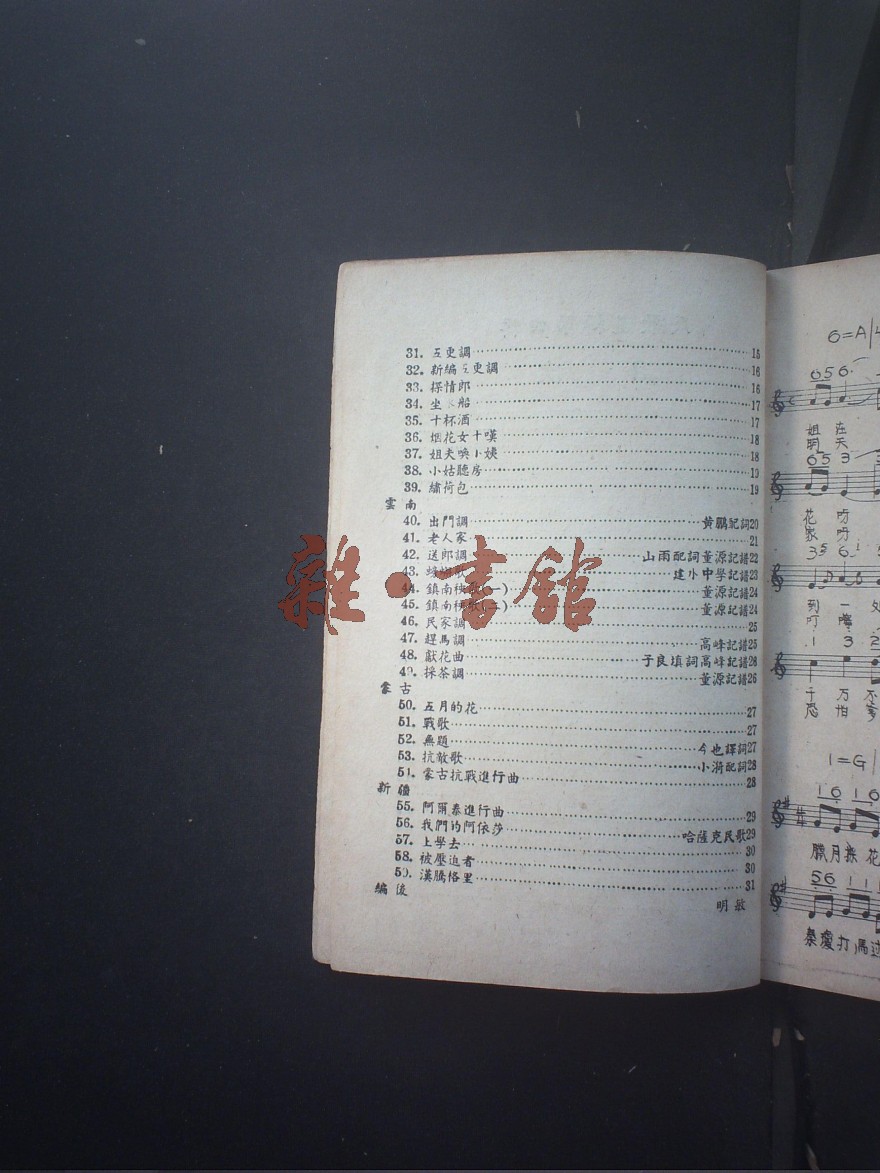 31. 五更調 15
32. 新編五更調 16
33. 探情郎 16
34. 坐 船 17
35. 十杯酒 17
36. 烟花女十嘆 18
37. 姐夫喚小姨 18
38. 小姑聽房 19
39. 繡荷包 19
雲南
40. 出門調 黄鵬配詞20
41. 老人家 21
42. 送郎調 山雨配詞董源記譜22
43. 歌 建水中學記譜23
44. 鎮南秧歌(一) 董源記譜24
45. 鎮南秧歌(二) 董源記譜24
46. 民家調 25
47. 趕馬調 高峰記譜25
48. 獻花曲 子良填詞高峰記譜26
49. 採茶調 董源記譜26
蒙古
50. 五月的花 27
51. 戰歌 27
52. 無題 今也譯詞27
53. 抗敵歌 小澌配詞28
54. 蒙古抗戰進行曲 28
新疆
55. 阿爾泰進行曲 29
56. 我們的阿依莎 哈薩克民歌29
57. 上學去 30
58. 被壓迫者 30
59. 漢騰格里 31
編後 明敏
雜·書館
6=A
6 5 6
姐 在
明 天
6 5 3
花 呀
家 呀
3 5 6
到 一
叮 嚀
1 3 2
千 万 不
恐 怕 爹
1=G
1 6 1 6
臘月採花
5 6 1 1
秦瓊打馬过